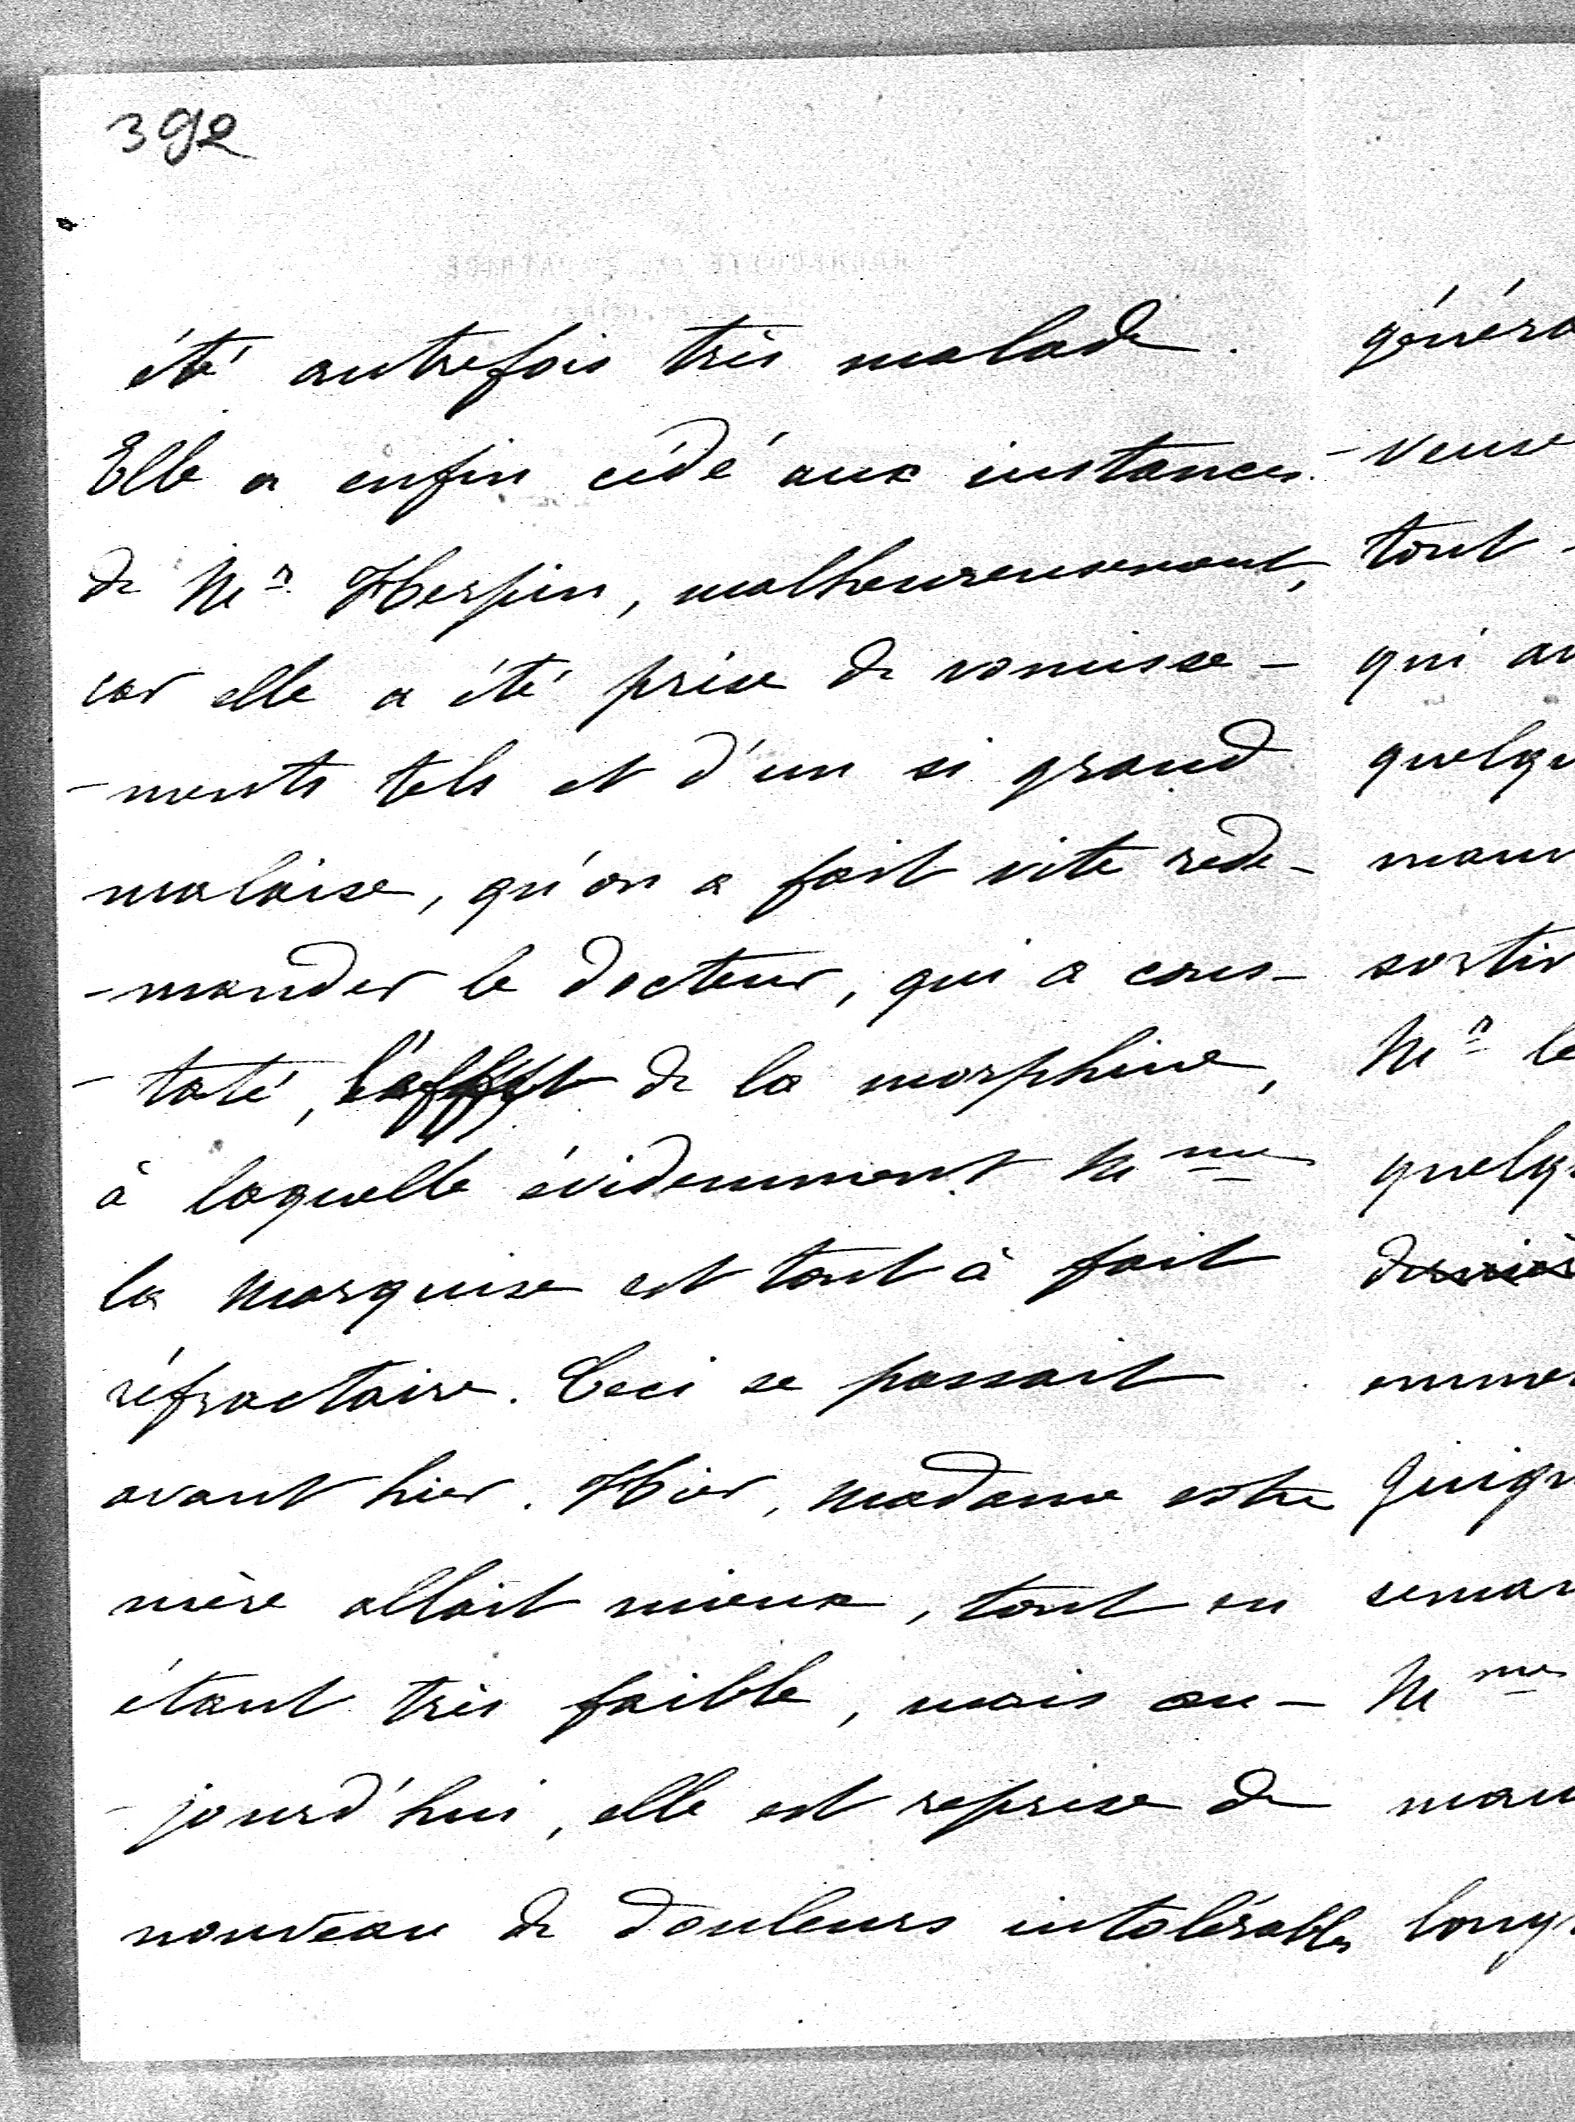 392
été autrefois très malade.
Elle a enfin cédé aux instances
de Mr. Herpin, malheureusement,
car elle a été prise de vomisse-
-ments tels et d'un si grand
malaise, qu'on a fait vite rede-
-mander le docteur, qui a cons-
-taté, l'effet de la morphine,
à laquelle évidemment Mme
la Marquise est tout à fait
réfractaire. Ceci se passait
avant hier. Hier, Madame votre
mère allait mieux, tout en
étant très faible, mais au-
-jourd'hui, elle est reprise de
nouveau de douleurs intolérables
généra
-veuse
tout-
qui au
quelqu
sortir
Mr le
quelqu
Mme